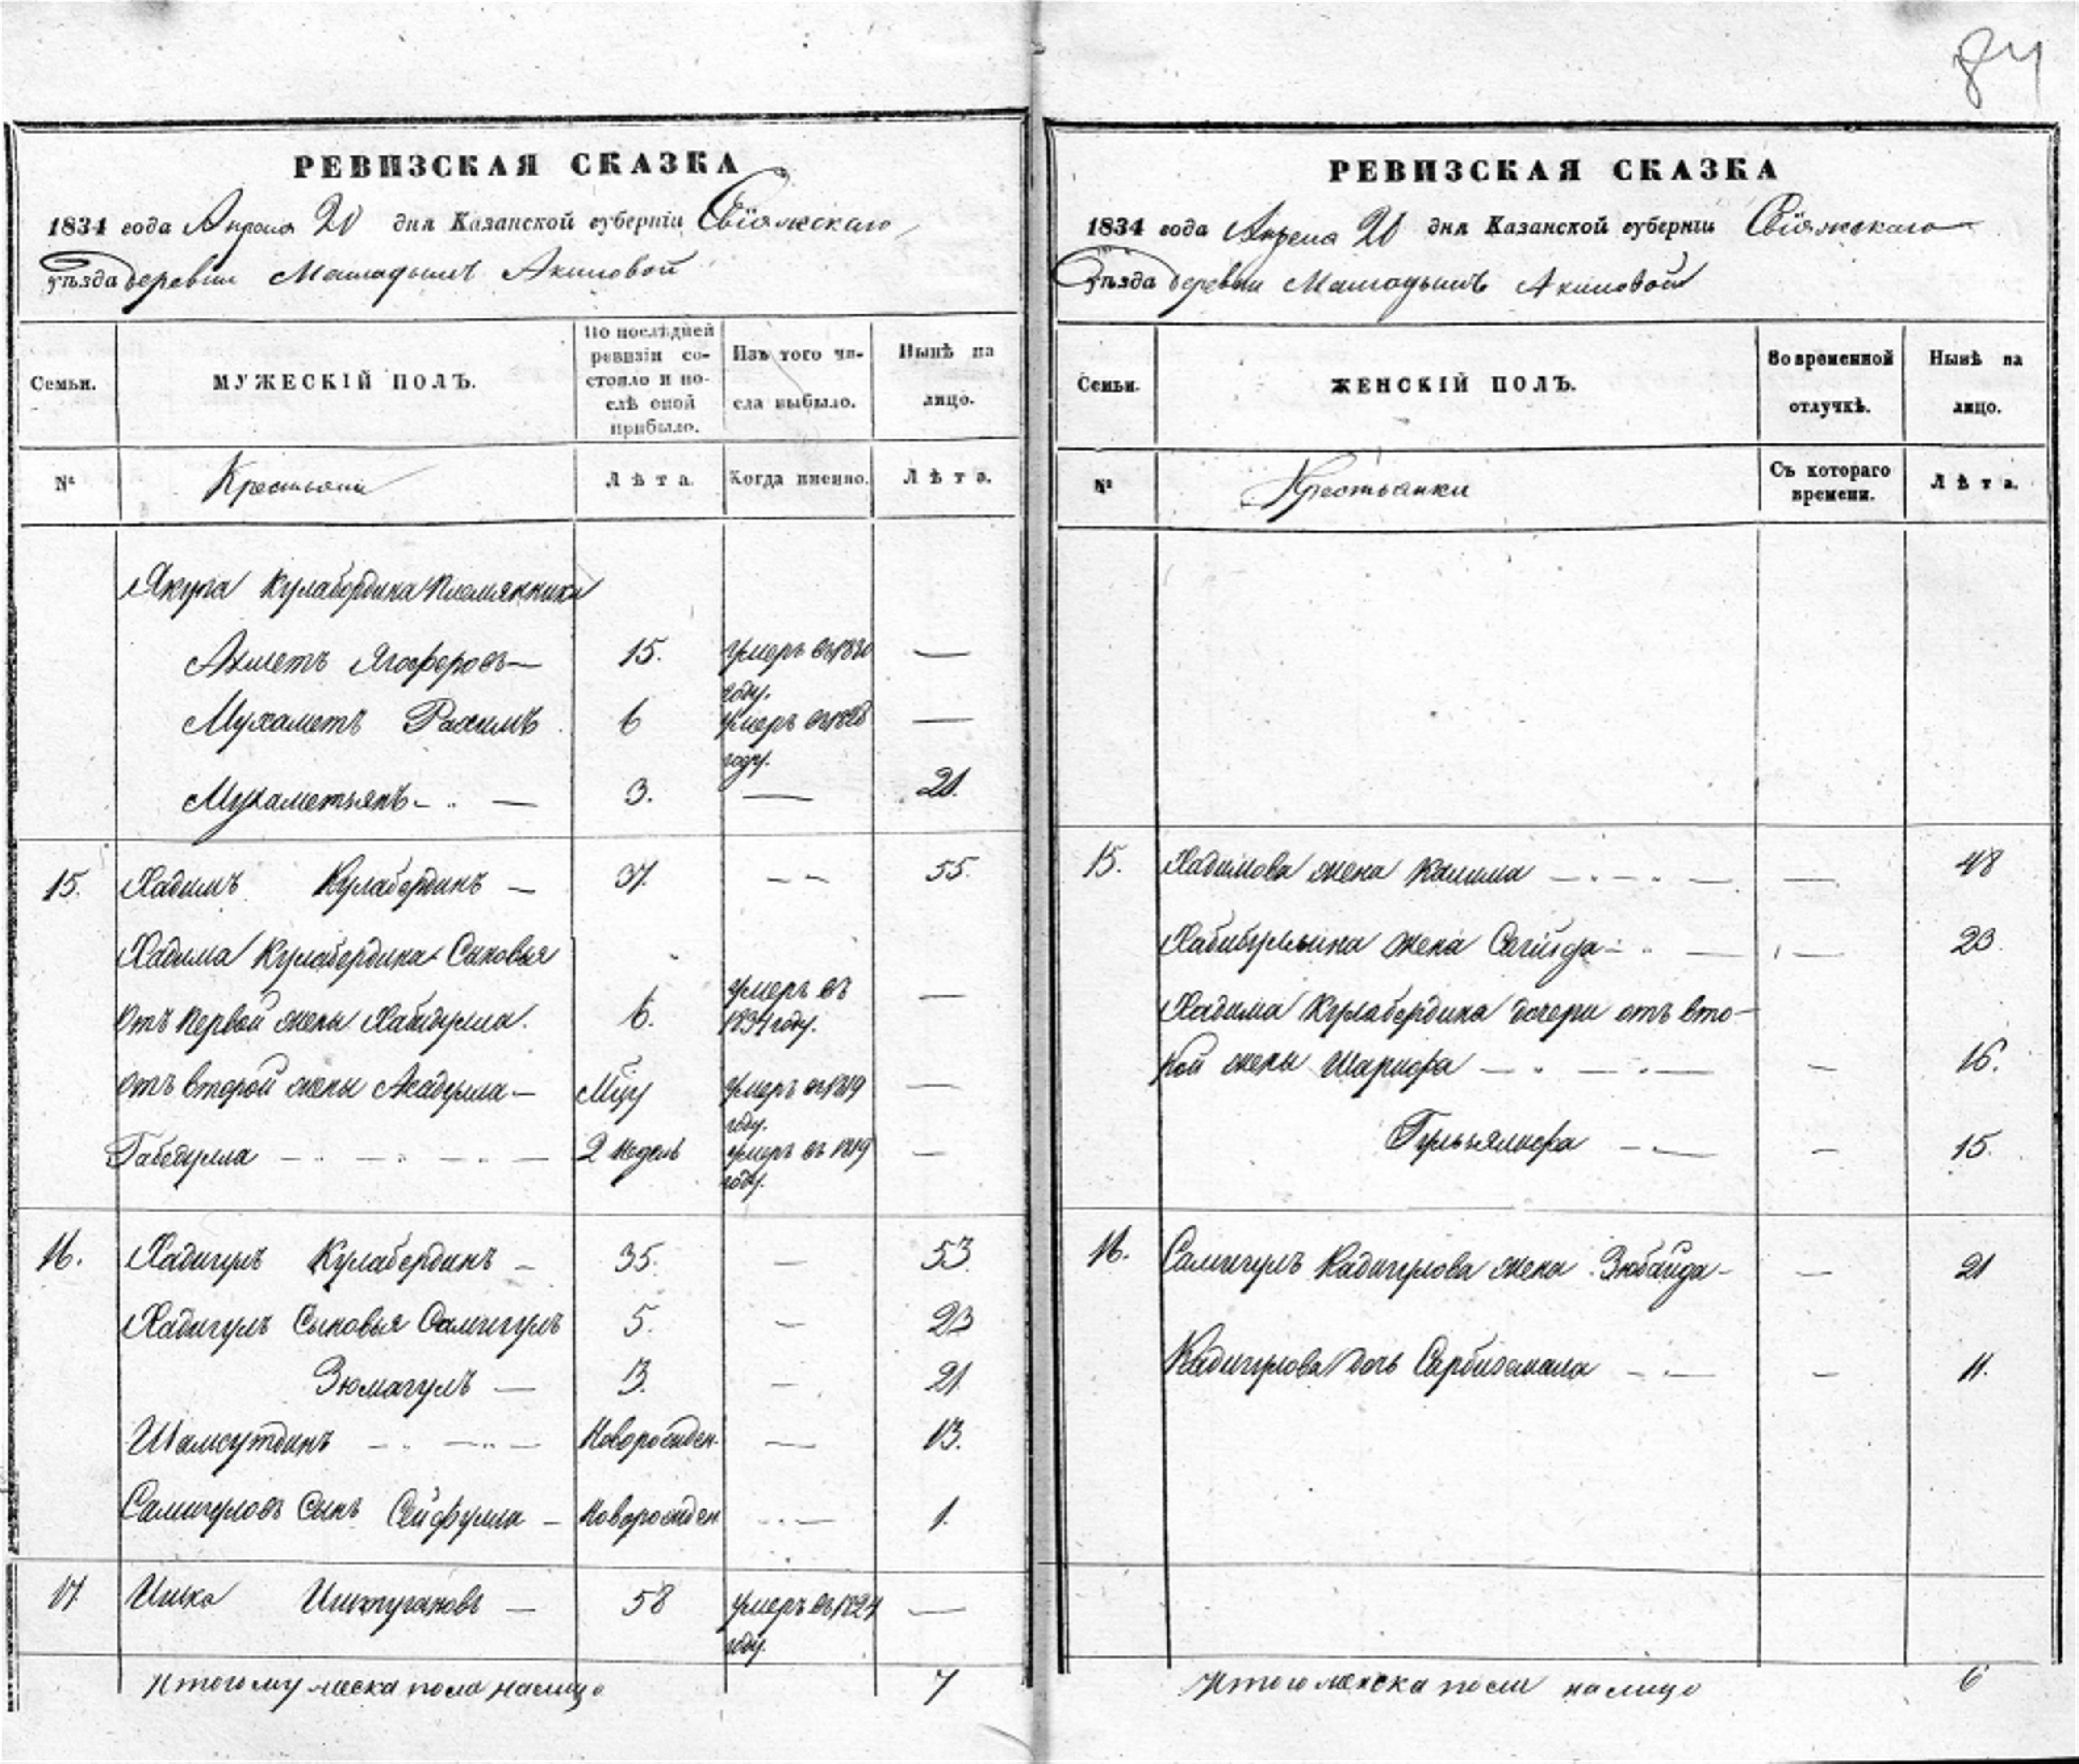 84
РЕВИЗСКАЯ СКАЗКА
1834 года Апреля 20 дня Казанской губерніи Свіяжскаго
уѣзда деревни Акиповой
Семьи.
МУЖЕСКІЙ ПОЛЪ.
По послѣдней ревизіи состояло и послѣ оной прибыло.
Изъ того числа выбыло.
Нынѣ на лицо.
№
Крестьяне
Лѣта.
Когда именно.
Лѣта.
Якупа Кулабердина племянники
Ахметъ Ягоферовъ — 15. умеръ въ 1830 году. —
Мухаметъ Рахимъ 6 умеръ въ 1828 году. —
Мухаметьянъ — 3. — 21.
15. Хадимъ Кулабердинъ — 37. — — 55.
Хадима Кулабердина Сыновья
отъ первой жены 6. умеръ въ 1834 году. —
отъ второй жены Асадулла — умеръ въ 1819 году. —
Габедулла — — — — 2 недель умеръ въ 1819 году. —
16. Хадигулъ Кулабердинъ — 35. — 53.
Хадигулъ Сыновья Самигулъ 5. — 23
Зюмагулъ — 3. — 21.
Шамсутдинъ — — — Новорожден. — 13.
Самигуловъ Сынъ Сейфулла — Новорожден — 1.
17. Ишка Иштугановъ — 58 умеръ въ 1824 году. —
Итого мужеска пола налицо 7
РЕВИЗСКАЯ СКАЗКА
1834 года Апреля 20 дня Казанской губерніи Свіяжскаго
уѣзда деревни Акиповой
Семьи.
ЖЕНСКІЙ ПОЛЪ.
Во временной отлучкѣ.
Нынѣ на лицо.
№
Крестьянки
Съ котораго времени.
Лѣта.
15. Хадимова жена Калима — — — — 48
Хабибуллина жена Сагийда — — — 23.
Хадима Кулабердина дочери отъ вто-
рой жены Шарифа — — — — 16.
— — — 15.
16. Самигулъ Кадигулова жена Зюбайда — — 21
Кадигулова дочь — — — 11.
Итого женска пола налицо 6